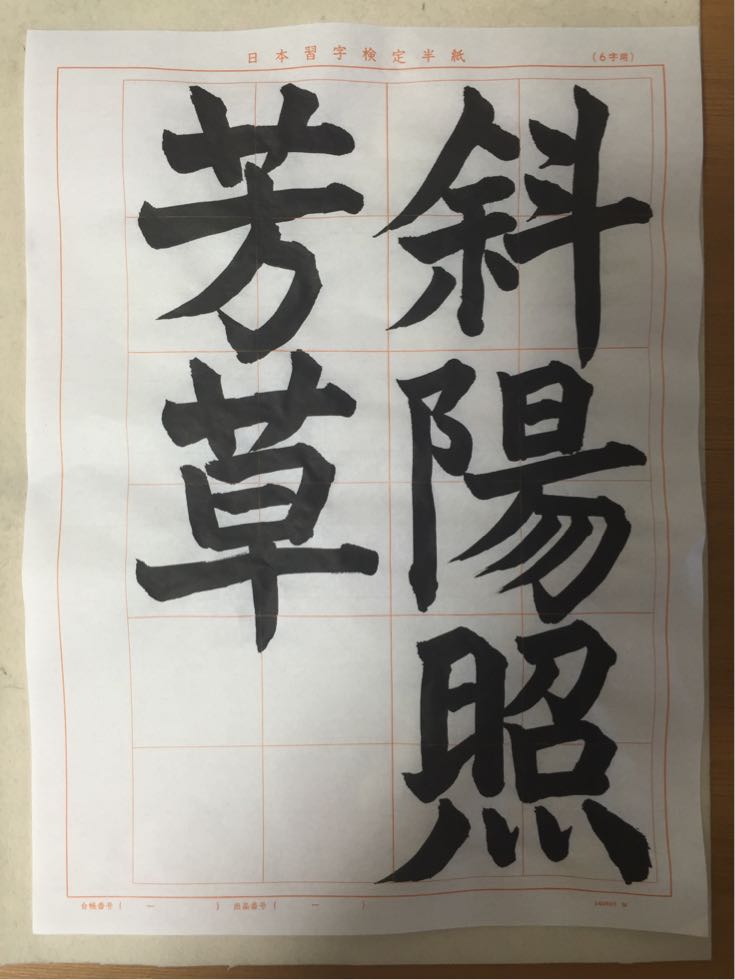 日本習字検定半紙
(6字用)
斜陽照
芳草
台帳番号( ー ) 出品番号( ー )